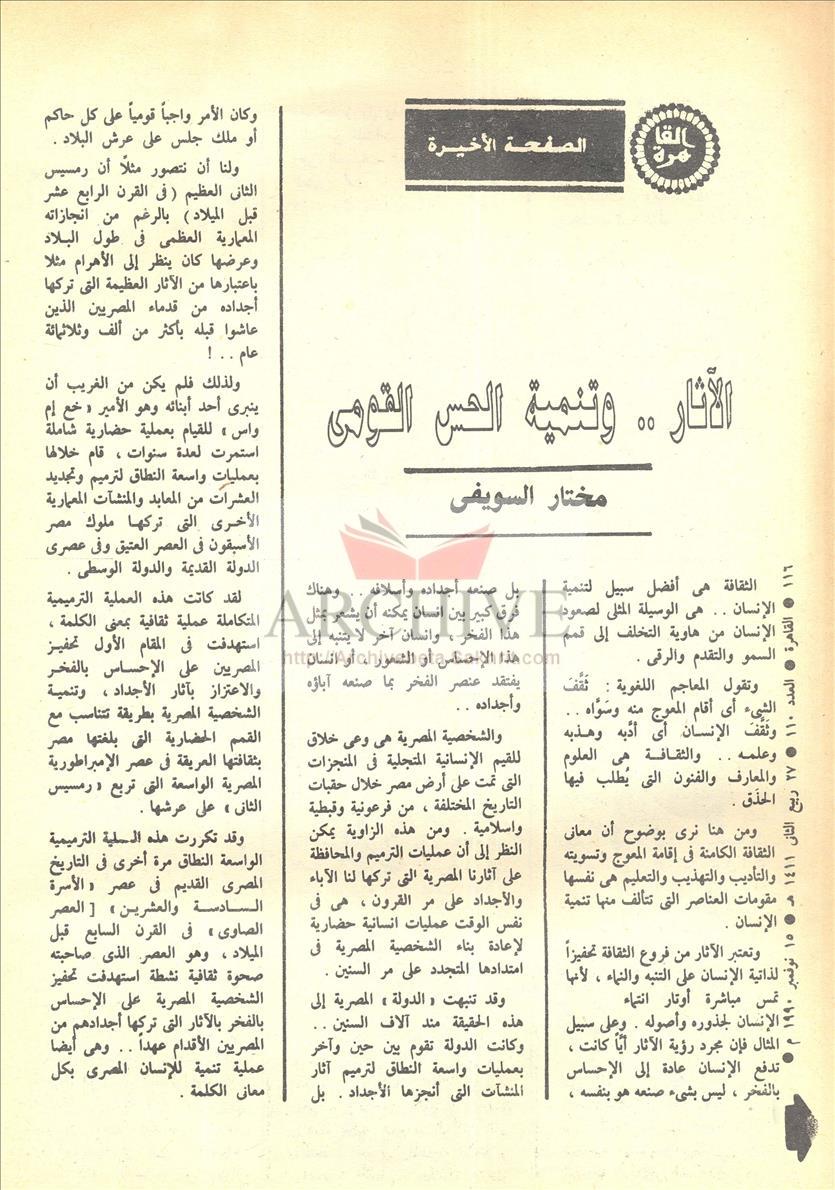 القاهرة
الصفحة الأخيرة
الآثار .. وتنمية الحس القومى
مختار السويفى
الثقافة هى أفضل سبيل لتنمية
الإنسان .. هى الوسيلة المثلى لصعود
الإنسان من هاوية التخلف إلى قمم
السمو والتقدم والرقى .
وتقول المعاجم اللغوية : ثَقَّفَ
الشىء أى أقام المعوج منه وسَوَّاه ..
وثَقَّفَ الإنسان أى أدَّبه وهذبه
وعلمه .. والثقافة هى العلوم
والمعارف والفنون التى يُطلب فيها
الحذَق .
ومن هنا نرى بوضوح أن معانى
الثقافة الكامنة فى إقامة المعوج وتسويته
والتأديب والتهذيب والتعليم هى نفسها
مقومات العناصر التى تتألف منها تنمية
الإنسان .
وتعتبر الآثار من فروع الثقافة تحفيزاً
لذاتية الإنسان على التنبه والنماء ، لأنها
تمس مباشرة أوتار انتماء
الإنسان لجذوره وأصوله . وعلى سبيل
المثال فإن مجرد رؤية الآثار أيًّا كانت ،
تدفع الإنسان عادة إلى الإحساس
بالفخر ، ليس بشىء صنعه هو بنفسه ،
بل صنعه أجداده وأسلافه .. وهناك
فرق كبير بين انسان يمكنه أن يشعر بمثل
هذا الفخر ، وانسان آخر لا يتنبه إلى
هذا الإحساس أو الشعور ، أو انسان
يفتقد عنصر الفخر بما صنعه آباؤه
وأجداده ..
والشخصية المصرية هى وعى خلاق
للقيم الإنسانية المتجلية فى المنجزات
التى تمت على أرض مصر خلال حقبات
التاريخ المختلفة ، من فرعونية وقبطية
واسلامية . ومن هذه الزاوية يمكن
النظر إلى أن عمليات الترميم والمحافظة
على آثارنا المصرية التى تركها لنا الآباء
والأجداد على مر القرون ، هى فى
نفس الوقت عمليات انسانية حضارية
لإعادة بناء الشخصية المصرية فى
امتدادها المتجدد على مر السنين .
وقد تنبهت « الدولة » المصرية إلى
هذه الحقيقة منذ آلاف السنين ..
وكانت الدولة تقوم بين حين وآخر
بعمليات واسعة النطاق لترميم آثار
المنشآت التى أنجزها الأجداد . بل
وكان الأمر واجباً قومياً على كل حاكم
أو ملك جلس على عرش البلاد .
ولنا أن نتصور مثلاً أن رمسيس
الثانى العظيم ( فى القرن الرابع عشر
قبل الميلاد ) بالرغم من انجازاته
المعمارية العظمى فى طول البلاد
وعرضها كان ينظر إلى الأهرام مثلا
باعتبارها من الآثار العظيمة التى تركها
أجداده من قدماء المصريين الذين
عاشوا قبله بأكثر من ألف وثلاثمائة
عام .. !
ولذلك فلم يكن من الغريب أن
ينبرى أحد أبنائه وهو الأمير « خع إم
واس » للقيام بعملية حضارية شاملة
استمرت لعدة سنوات ، قام خلالها
بعمليات واسعة النطاق لترميم وتجديد
العشرات من المعابد والمنشآت المعمارية
الأخرى التى تركها ملوك مصر
الأسبقون فى العصر العتيق وفى عصرى
الدولة القديمة والدولة الوسطى .
لقد كانت هذه العملية الترميمية
المتكاملة عملية ثقافية بمعنى الكلمة ،
استهدفت فى المقام الأول تحفيز
المصريين على الإحساس بالفخر
والاعتزاز بآثار الأجداد ، وتنمية
الشخصية المصرية بطريقة تتناسب مع
القمم الحضارية التى بلغتها مصر
بثقافتها العريقة فى عصر الإمبراطورية
المصرية الواسعة التى تربع « رمسيس
الثانى » على عرشها .
وقد تكررت هذه العملية الترميمية
الواسعة النطاق مرة أخرى فى التاريخ
المصرى القديم فى عصر « الأسرة
السادسة والعشرين » [ العصر
الصاوى ] فى القرن السابع قبل
الميلاد ، وهو العصر الذى صاحبته
صحوة ثقافية نشطة استهدفت تحفيز
الشخصية المصرية على الإحساس
بالفخر بالآثار التى تركها أجدادهم من
المصريين الأقدام عهداً .. وهى أيضا
عملية تنمية للإنسان المصرى بكل
معانى الكلمة .
١١٦ ● القاهرة ● العدد ١١٠ ● ٢٧ ربيع الثانى ١٤١١ هـ ● ١٥ نوفمبر ١٩٩٠ م ●
ARCHIVE
http://Archivebeta.Sakhrit.com